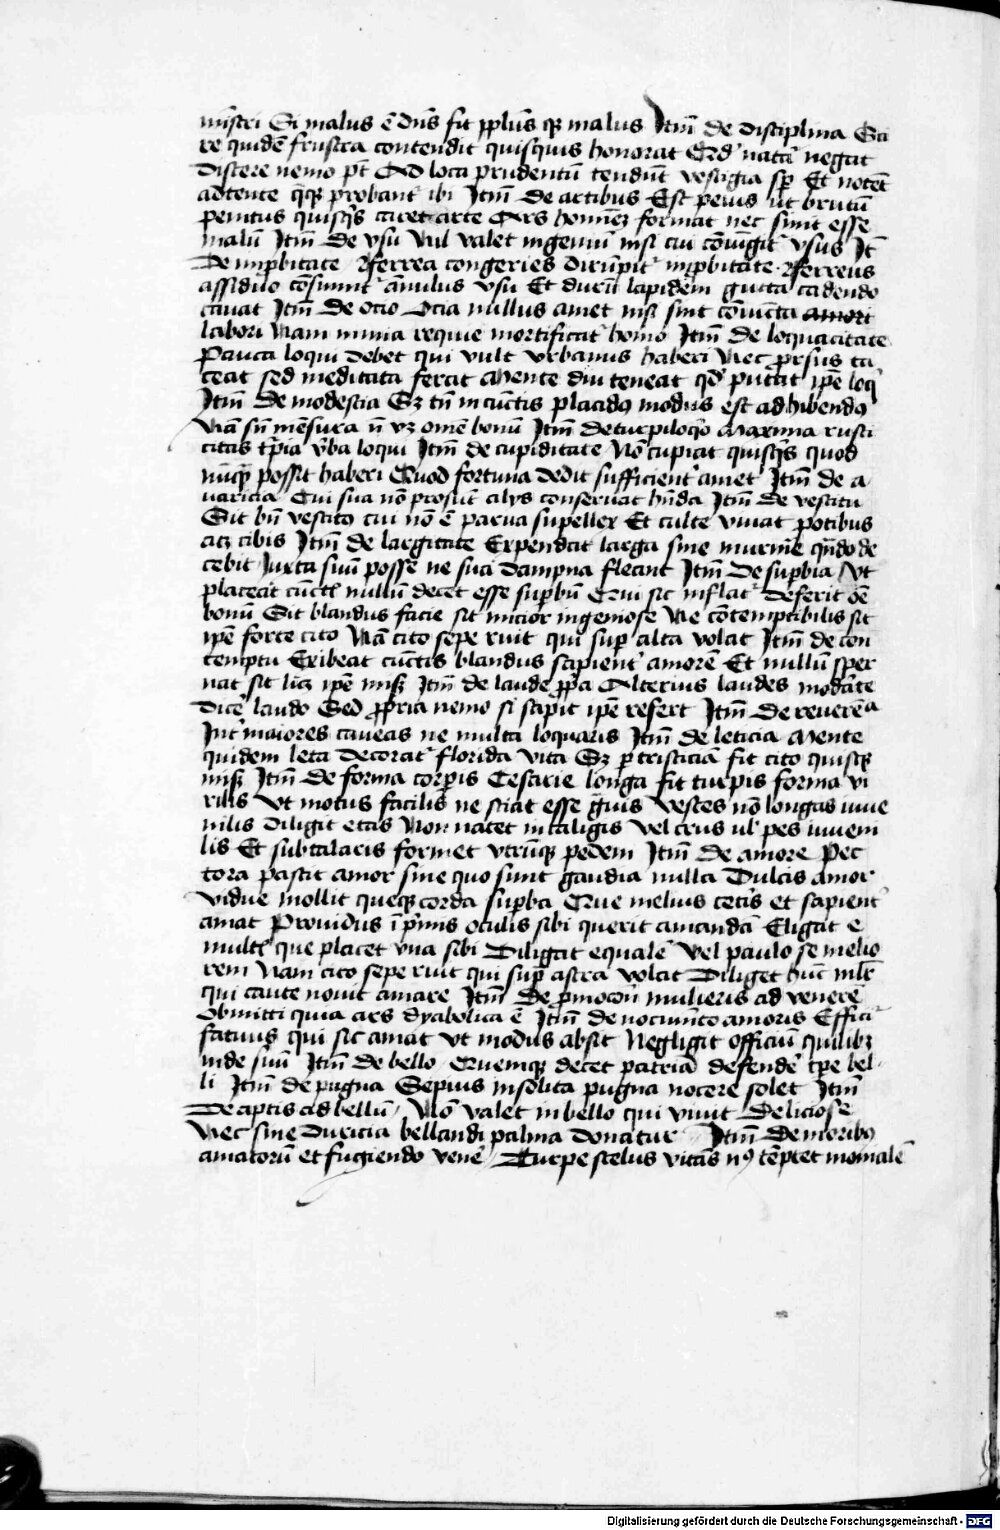 mīstri Si malus ē dn̄s fit pplūs qꝫ malus Itm̄ de disciplina Sci
re quidē frustra contendit quisquis honorat Qd' natā negat
discere nemo pt̄ Ad loca prudentū tendūt vestigia sp̄ Et notēt
adtente qꝫ probant' ibi Itm̄ de artibus Est peius ut brutū
penitus quisqs caret arte Ars hominēs format nec sinit esse
malū Itm̄ de vsu Nil valet ingeniū nisi cui cōiūgit' vsus Itm̄
de īprobitate fferrea congeries dirūpit' īprobitate fferreus
assiduo cōsumit' ānulus vsu Et durū lapidem gutta cadendo
cauat Itm̄ de ocio Ocia nullus amet nisi sint cōiuncta amori
labori Nam nimia requie mortificat' homo Itm̄ de loquacitate
Pauca loqui debet qui vult vrbanus haberi Nec prorsus ta
ceat sed meditata ferat Mente diu teneat qd' putat ipe loq'
Itm̄ de modestia Sꝫ tn̄ in cunctis placidꝯ modus est adhibendꝯ
Nā sn̄ mēsura n̄ vꝫ omē bonū Itm̄ de turpiloq̄o Maxima rusti
citas t̄pia v̄ba loqui Itm̄ de cupiditate Nō cupiat quisqs quod
nūqꝫ possit haberi Quod fortuna dedit sufficient' amet Itm̄ de a
uaricia Cui sua nō prosūt alijs conseruat hn̄da Itm̄ de vestitu
Sit bn̄ vestitꝯ cui nō ē parua supellex Et culte viuat potibus
atqꝫ cibis Itm̄ de largitate Expendat larga sine murmē qn̄do de
cebit Iuxta suū posse ne sua dampna fleant Itm̄ de supbia Vt
placeat cūctis nullū decet esse supbū Qui sic inflat' deserit oē
bonū Sit blandus facie sit micior ingeniose Ne cōtemptibilis sit
ipe forte cito Nā cito sepe ruit qui sup alta volat Itm̄ de con
temptu Exibeat cūctis blandus sapient' amorē Et nullū sper
nat sit licꝫ ipe misꝫ Itm̄ de laude ppa Alterius laudes modāte
dicē laudo Sed ppria nemo si sapit ipe refert Itm̄ de reuerēa
Int' maiores caueas ne multa loquaris Itm̄ de leticia Mente
quidem leta decorat' florida vita Sꝫ p tristiciā fit cito quisqs
misꝫ Itm̄ de forma corpis Cesarie longa fit turpis forma vi
rilis Vt motus facilis ne sciat esse ḡuis Vestes nō longas iuue
nilis diligit etas Non natet in caligis vel crus ul' pes iuueni
lis Et subtalaris formet vtrūqꝫ pedem Itm̄ de amore Pec
tora pascit amor sine quo sunt gaudia nulla Dulcis amor
vidue mollit queqꝫ corda supba Que melius cetis et sapient'
amat Prouidus ī pmis oculis sibi querit amandā Eligat e
mult' que placet vna sibi Diligat equalē vel paulo se melio
rem Nam cito sepe ruit qui sup astra volat Diliget hūc mlr̄
qui caute nouit amare Itm̄ de pmocōn mulieris ad venerē
Obmitti quia ars dyabolica ē Itm̄ de nocumēto amoris Effici'
fatuus qui sic amat vt modus absit Negligit officiū quilibꝫ
inde suū Itm̄ de bello Quemqꝫ decet patriā defendē tpe bel-
li Itm̄ de pugna Sepius insolita pugna nocere solet Itm̄
De aptis ad bellū Nō valet in bello qui viuit deliciose
Nec sine duricia bellandi palma donatur Itm̄ de moribꝯ
amatorū et fugiendo venē Turpe scelus vitās nꝯ tēptet monialē
Digitalisierung gefördert durch die Deutsche Forschungsgemeinschaft - DFG